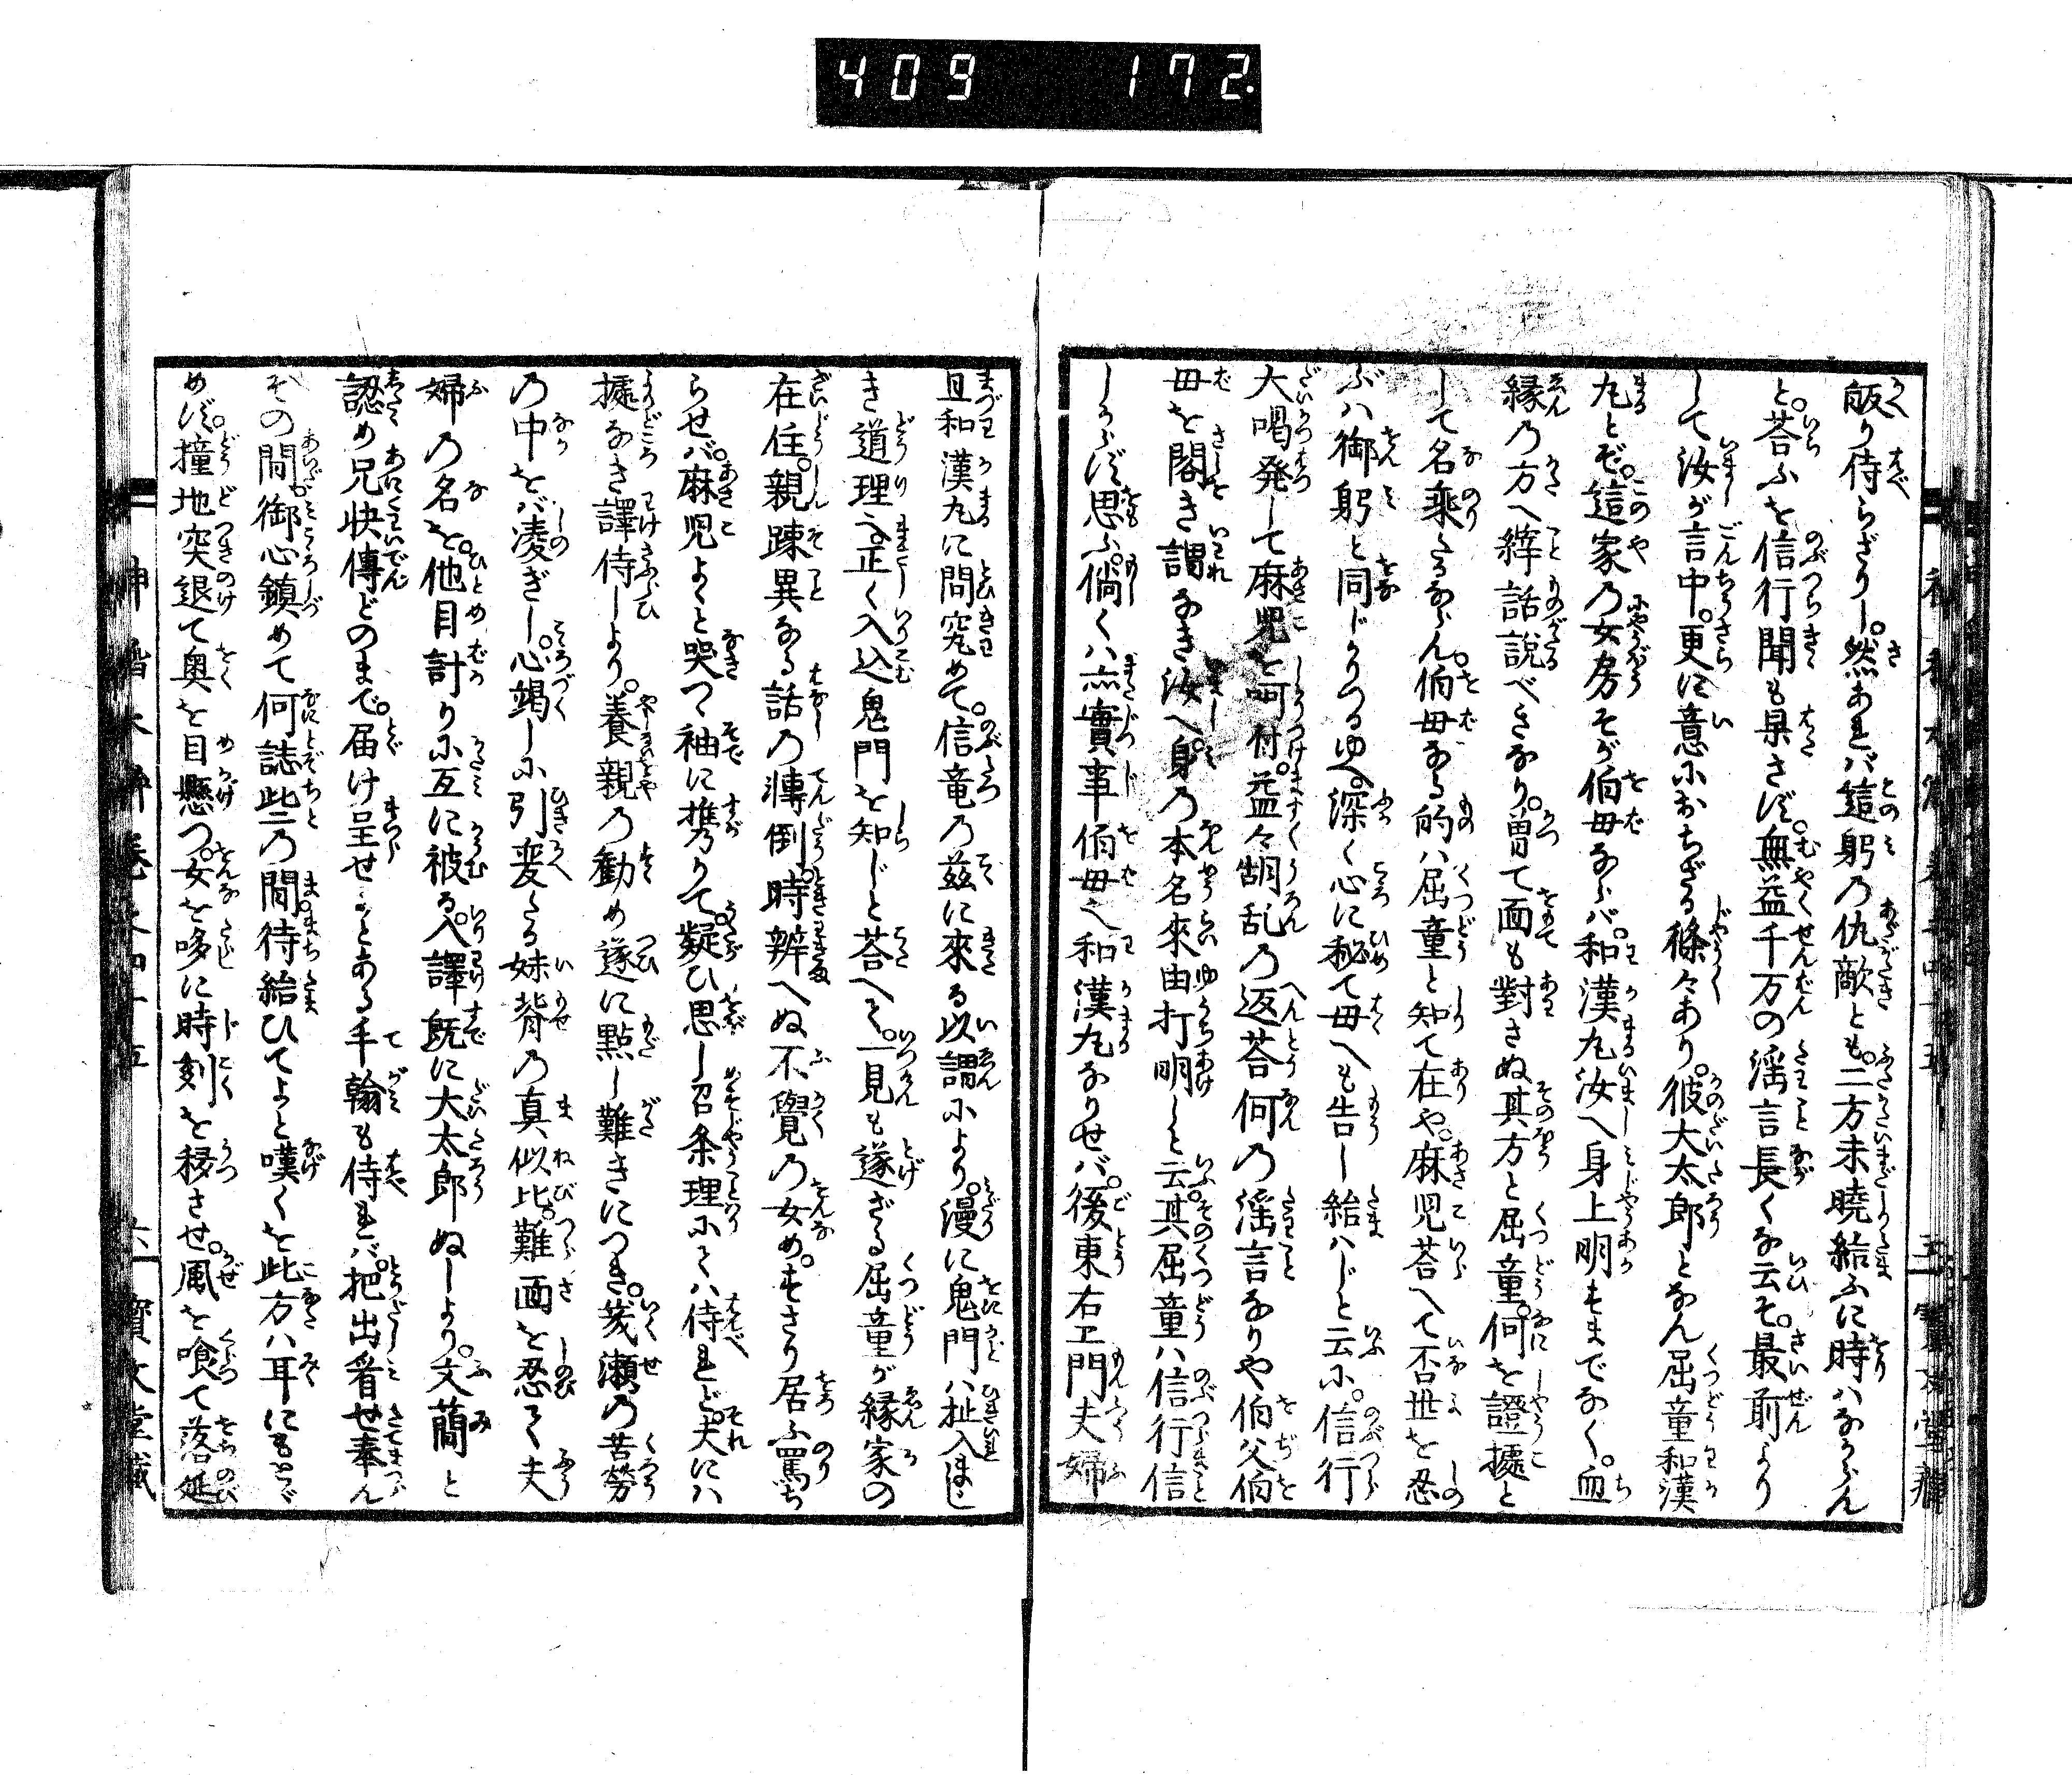 409 172.
皈り侍らざりし。然あれバ這躬の仇敵とも。二方未曉給ふに時ハなからん
と。荅ふを信行聞も果さず。無益千万の淫言長くな云そ。最前より
して汝が言中。更に意におちざる條々あり。彼大太郎となん屈童和漢
丸とぞ。這家の女房そが伯母ならバ。和漢丸汝へ身上明すまでなく。血
縁の方へ縡話説べきなり。曽て面も對さぬ其方と屈童。何を證據と
して名乗たるならん。伯母なる的ハ屈童と知て在や。麻児荅へて否世を忍
ぶハ御躬と同じかりつるゆへ。深く心に秘て母へも告し給ハじと云に。信行
大喝発して麻児を呵付。益々胡乱の返荅何の淫言なりや伯父伯
母を閣き謂なき汝へ。身の本名來由打明しと云。其屈童ハ信行信
しからず思ふ。倘くハ亦實事伯母へ和漢丸なりせバ。後東右エ門夫婦
且和漢丸に問究めて。信竜の茲に來る以謂により。漫に鬼門ハ扯入まじ
き道理へ正く入込鬼門を知じと荅へそ。一見も遂ざる屈童が縁家の
在住。親踈異なる話の轉倒。時辨へぬ不覺の女め。すさり居ふ罵ち
らせバ。麻児よゝと哭つ袖に携りて。疑ひ思し召条理にそハ侍れど。夫にハ
據なき譯侍しより。養親の勸め遂に點し難きにつき。幾瀬の苦勞
の中をバ凌ぎし。心竭しに引変たる妹脊の真似比。難面を忍てそ夫
婦の名を。他目計りに互に被るへ譯既に大太郎ぬしより。文簡と
認め兄快傳どのまで。届け呈せよとある手翰も侍れバ。把出看せ奉ん
その間御心鎮めて何誌些の間待給ひてよと嘆くを此方ハ耳にもとゞ
めず。撞地突退て奥を目懸つ。女を哆に時刻を移させ。風を喰て落延